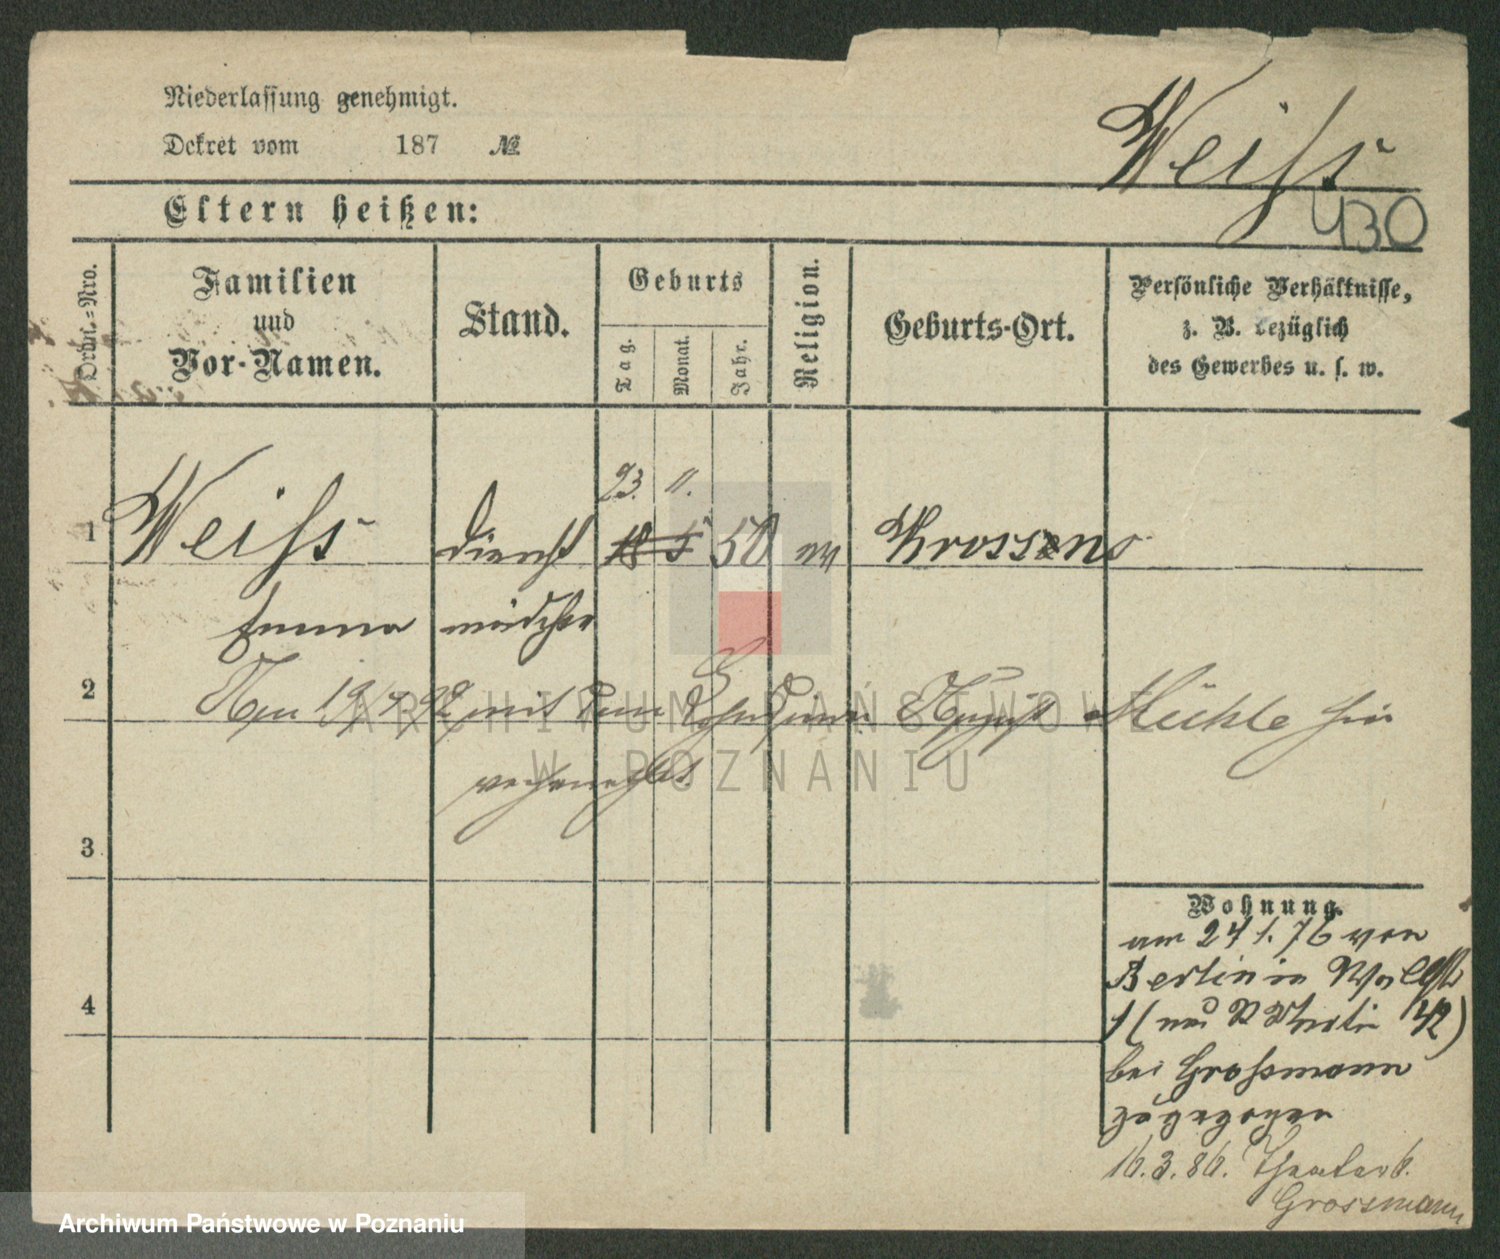 Niederlassung genehmigt.
Dekret vom 187 №
Weiss
430
Eltern heißen:
Ordn.-Nro.
Familien und Vor-Namen.
Stand.
Geburts
Tag.
Monat.
Jahr.
Religion.
Geburts-Ort.
Persönliche Verhältnisse,
z. B. bezüglich
des Gewerbes u. s. w.
23. 11.
1 Weiss Dienst 18 5 50 ev Krossen
Emma mädchen
2 Am 19/4 92 mit dem August Mückle hier
verheirathet.
3
Wohnung.
am 24 1. 76 von
Berlin in
4
bei Grossmann
zugezogen
16.3.86. Theater 6.
Grossmann
ARCHIWUM PAŃSTWOWE
W POZNANIU
Archiwum Państwowe w Poznaniu